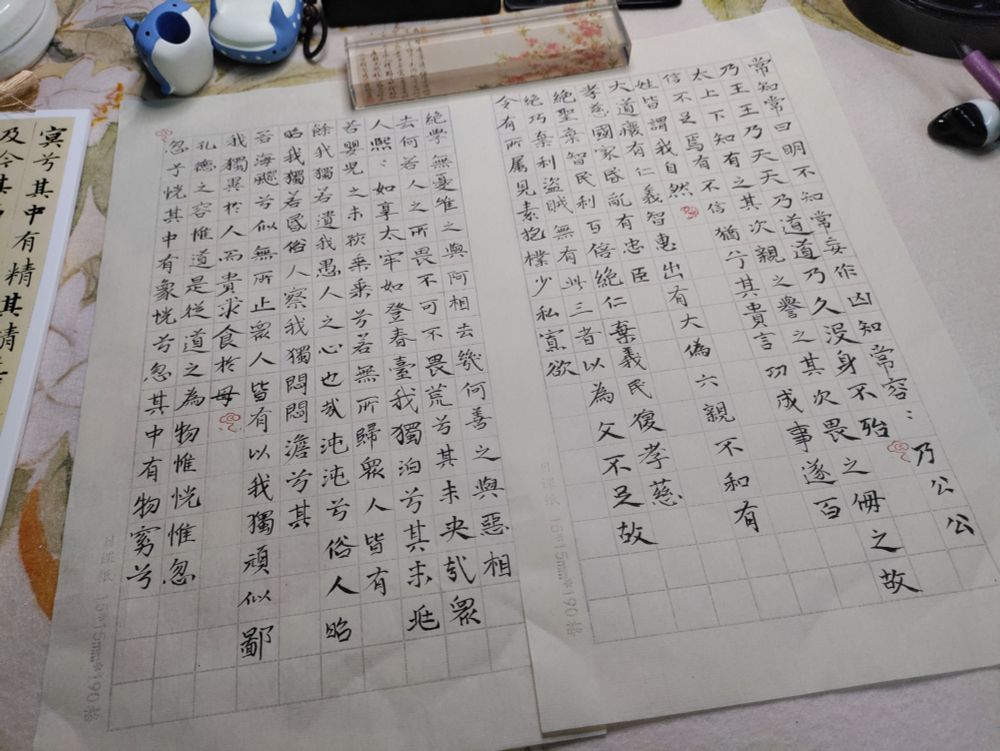 常知常曰明不知常妄作凶知常容：乃公公
乃王王乃天天乃道道乃久没身不殆
太上下知有之其次親之譽之其次畏之侮之故
信不足焉有不信猶兮其貴言功成事遂百
姓皆謂我自然
大道癈有仁義智惠出有大偽六親不和有
孝慈國家昏亂有忠臣
絕聖棄智民利百倍絕仁棄義民復孝慈
絕巧棄利盜賊無有此三者以為文不足故
令有所属見素抱樸少私寡欲
日課紙 15*15mm*190格
絕學無憂唯之與阿相去幾何善之與惡相
去何若人之所畏不可不畏荒兮其未央哉眾
人熙：如享太牢如登春臺我獨泊兮其未兆
若嬰兒之未孩乘乘兮若無所歸眾人皆有
餘我獨若遺我愚人之心也哉沌沌兮俗人昭
昭我獨若昏俗人察我獨悶悶澹兮其
若海飂兮似無所止眾人皆有以我獨頑似鄙
我獨異於人而貴求食於母
孔德之容惟道是從道之為物惟恍惟忽
忽兮恍其中有象恍兮忽其中有物窈兮
日課紙 15*15mm*190格
冥兮其中有精其精
及今其中